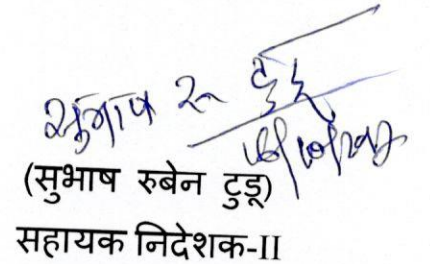 सुभाष रु टुडू
(सुभाष रुबेन टुडू)
सहायक निदेशक-II